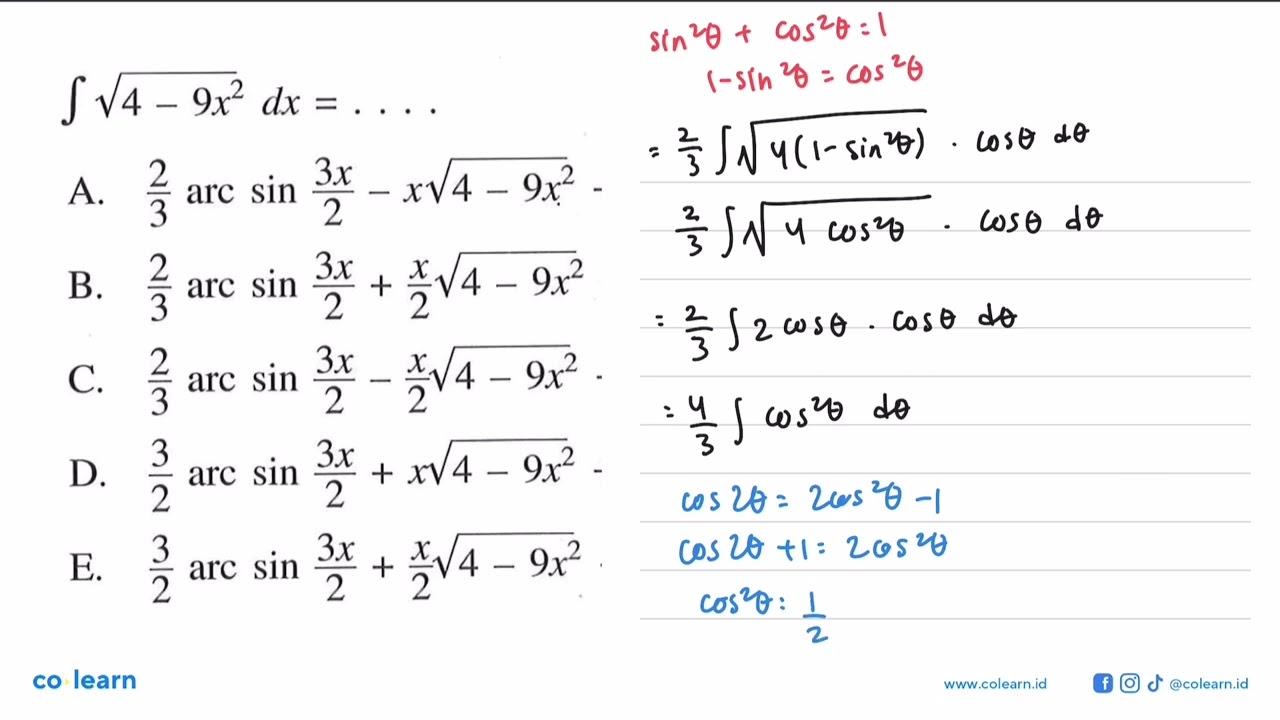 ∫ √(4 − 9x²) dx = . . . .
A. 2/3 arc sin 3x/2 − x√(4 − 9x²)
B. 2/3 arc sin 3x/2 + x/2 √(4 − 9x²)
C. 2/3 arc sin 3x/2 − x/2 √(4 − 9x²)
D. 3/2 arc sin 3x/2 + x√(4 − 9x²)
E. 3/2 arc sin 3x/2 + x/2 √(4 − 9x²)
sin²θ + cos²θ = 1
1 - sin²θ = cos²θ
= 2/3 ∫ √(4(1 - sin²θ)) . cosθ dθ
2/3 ∫ √(4 cos²θ) . cosθ dθ
= 2/3 ∫ 2 cosθ . cosθ dθ
= 4/3 ∫ cos²θ dθ
cos 2θ = 2cos²θ - 1
cos 2θ + 1 = 2 cos²θ
cos²θ = 1/2
co learn
www.colearn.id
@colearn.id